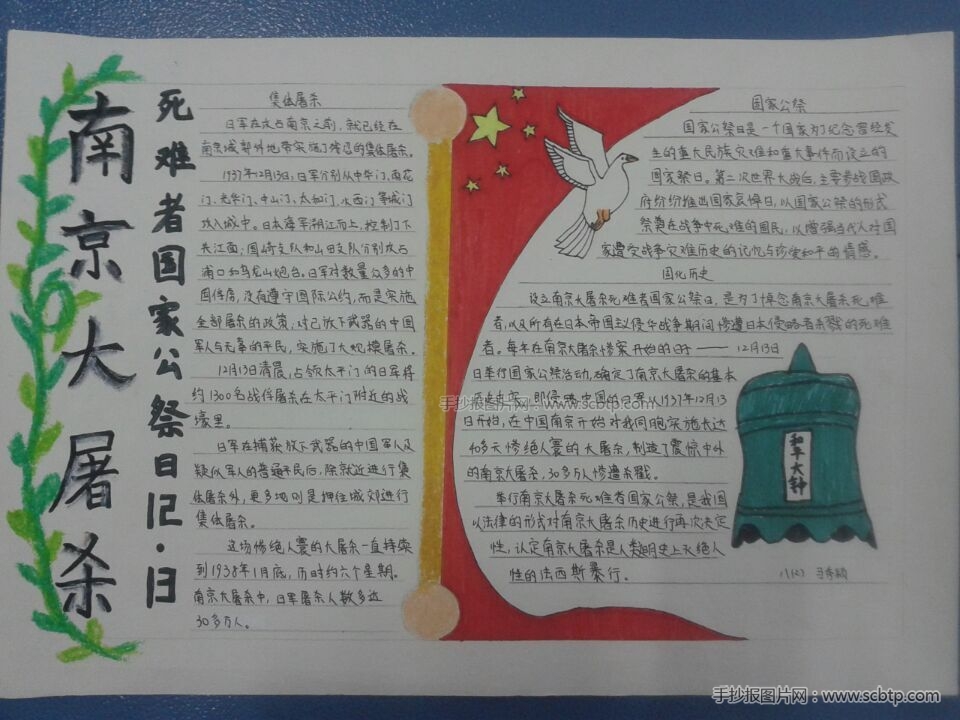 南京大屠杀
死难者国家公祭日记·归
集体屠杀
日军在攻占南京之前，就已经在
南京城郭外地带实施了残忍的集体屠杀。
1937年12月13日，日军分别从中华门、雨花
门、光华门、中山门、太和门、水西门等城门
攻入城中。日本海军溯江而上，控制了下
关江面；国崎支队和山田支队分别攻占
浦口和乌龙山炮台。日军对数量众多的中
国俘虏，没有遵守国际公约，而是实施
全部屠杀的政策，对已放下武器的中国
军人与无辜的平民，实施了大规模屠杀。
12月13日清晨，占领太平门的日军将
约1300名战俘屠杀在太平门附近的战
壕里。
日军在捕获放下武器的中国军人及
疑似军人的普通平民后，除就近进行集
体屠杀外，更多地则是押往城郊进行
集体屠杀。
这场惨绝人寰的大屠杀一直持续
到1938年1月底，历时约六个星期。
南京大屠杀中，日军屠杀人数多达
30多万人。
国家公祭
国家公祭日是一个国家为了纪念曾经发
生的重大民族灾难和重大事件而设立的
国家祭日。第二次世界大战后，主要参战国政
府纷纷推出国家哀悼日，以国家公祭的形式
祭奠在战争中死难的国民，以增强当代人对国
家遭受战争灾难历史的记忆与珍爱和平的情感。
固化历史
设立南京大屠杀死难者国家公祭日，是为了悼念南京大屠杀死难
者，以及所有在日本帝国主义侵华战争期间惨遭日本侵略者杀戮的死难
者。每年在南京大屠杀惨案开始的日子——12月13
日举行国家公祭活动，确定了南京大屠杀的基本
历史史实，即侵略中国的日军从1937年12月13
日开始，在中国南京开始对我同胞实施长达
40多天惨绝人寰的大屠杀，制造了震惊中外
的南京大屠杀，30多万人惨遭杀戮。
举行南京大屠杀死难者国家公祭，是我国
以法律的形式对南京大屠杀历史进行再次决定
性，认定南京大屠杀是人类文明史上灭绝人
性的法西斯暴行。
和平大钟
手抄报图片网：www.scbtp.com
手抄报图片网：www.scbtp.com